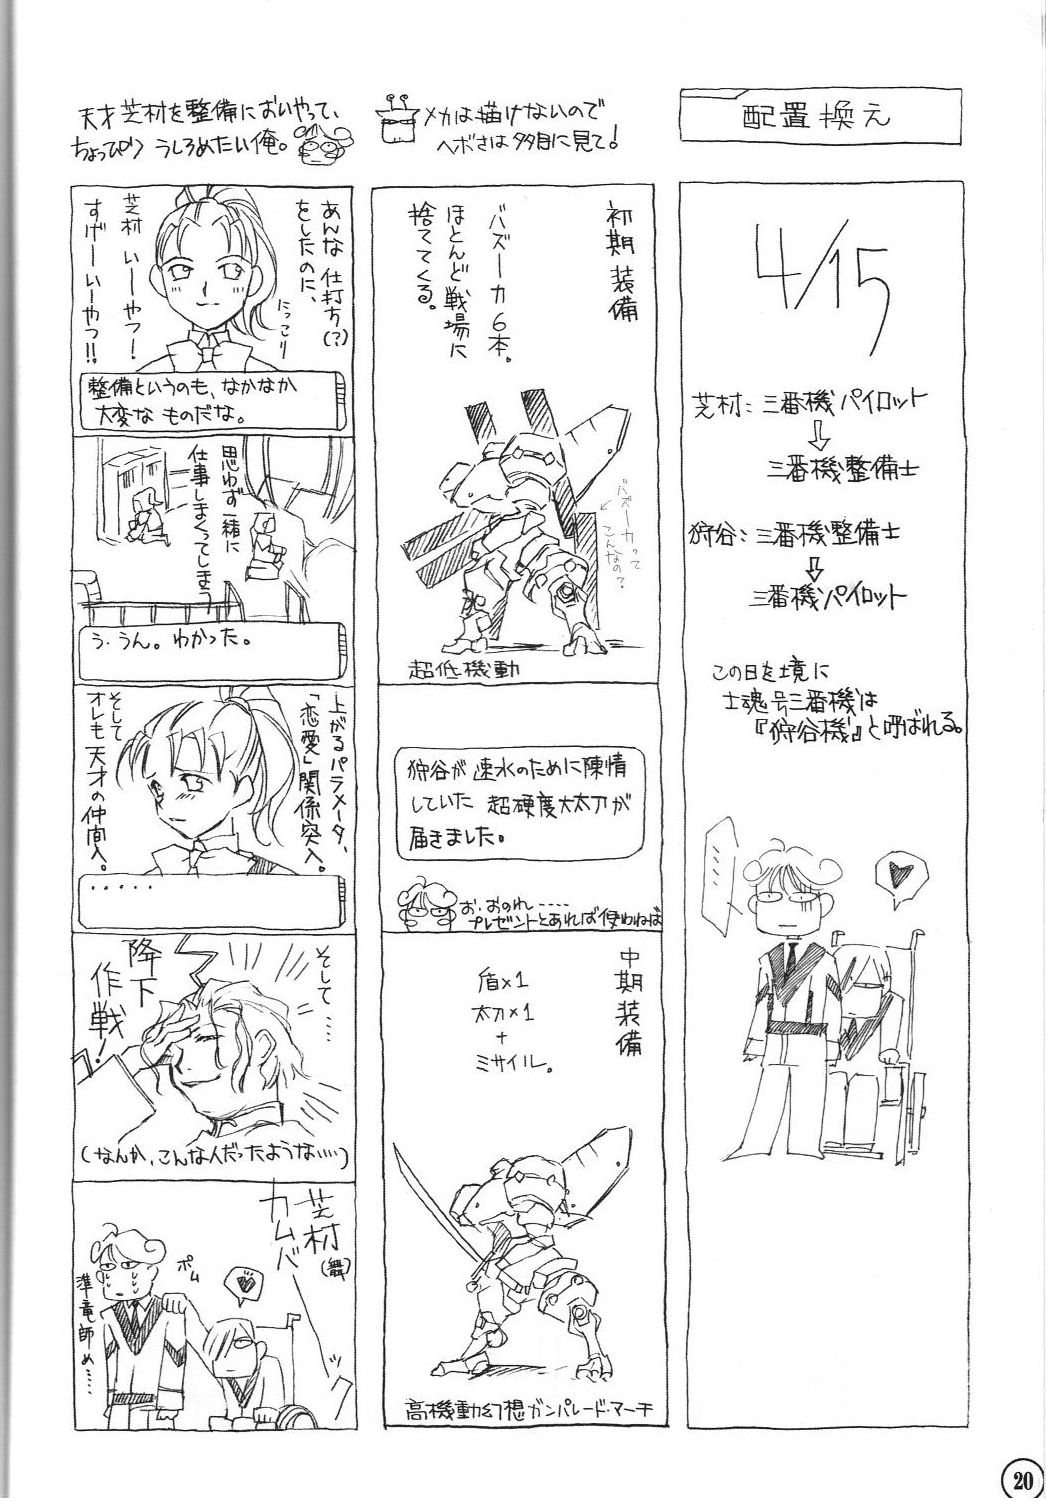 配置換え
4/15
芝村:三番機パイロット
⇩
三番機整備士
狩谷:三番機整備士
⇩
三番機パイロット
この日を境に
士魂号三番機は
『狩谷機』と呼ばれる。
‥‥‥
メカは描けないので
ヘボさは多目に見て!
初期装備
バズーカ6本。
ほとんど戦場に
捨ててくる。
バズーカって
こんなの?
超低機動
狩谷が速水のために陳情
していた 超硬度大太刀が
届きました。
お、おのれ‥‥
プレゼントとあれば使わねば
中期装備
盾×1
太刀×1
+
ミサイル。
高機動幻想ガンパレード・マーチ
天才芝村を整備においやって、
ちょっぴり うしろめたい俺。
あんな仕打ち(?)
をしたのに、
にっこり
芝村 いーやつー!
すげーいーやつ!!
整備というのも、なかなか
大変な ものだな。
思わず一緒に
仕事しまくってしまう
う、うん。わかった。
上がるパラメータ、
「恋愛」関係突入。
そして
オレも天才の仲間入。
・・・・・
そして‥‥
降下
作戦!
(なんか、こんな人だったような‥‥)
芝村(舞)
カムバーック
ポム
準竜師め‥‥
20